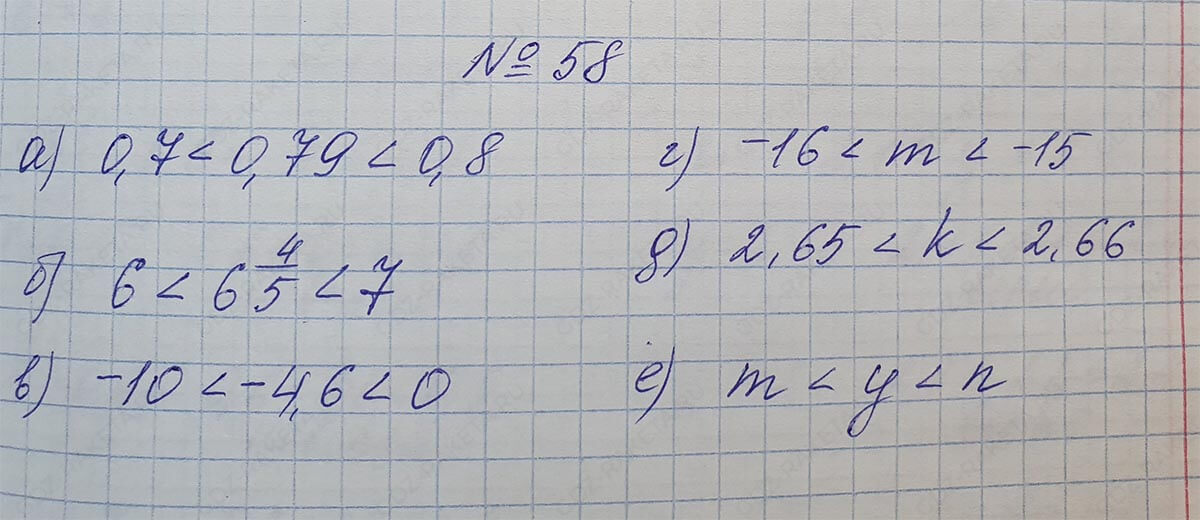 № 58
а) 0,7 < 0,79 < 0,8
б) 6 < 6 4/5 < 7
в) -10 < -4,6 < 0
г) -16 < m < -15
д) 2,65 < k < 2,66
е) m < y < n